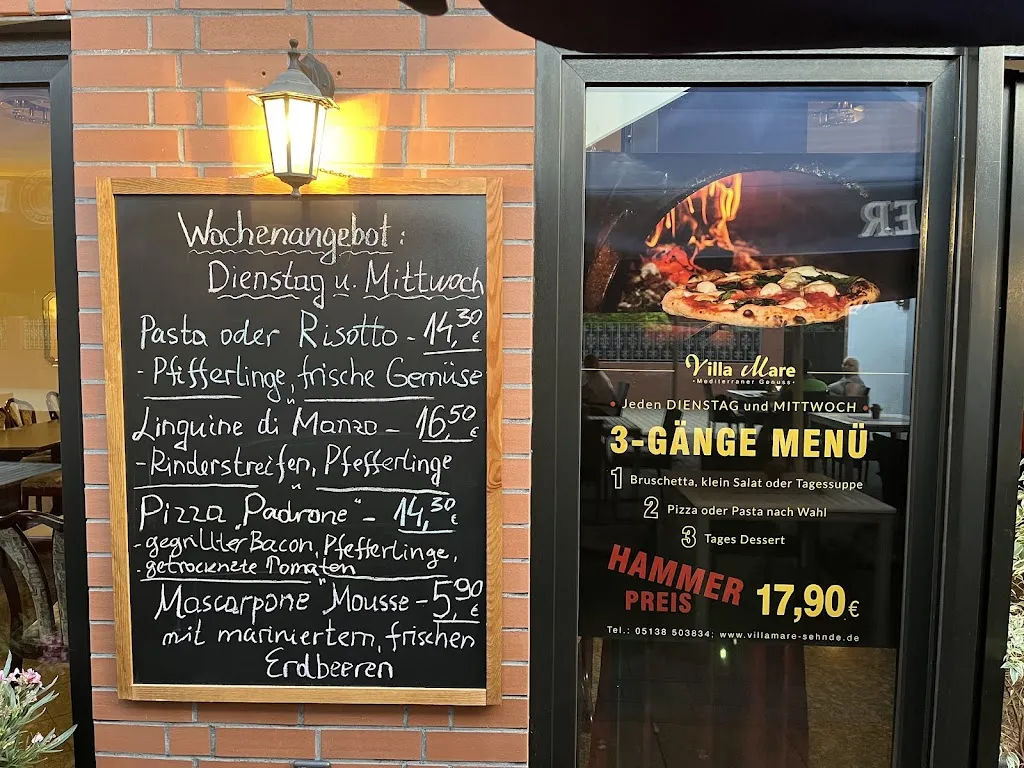 Wochenangebot:
Dienstag u. Mittwoch
Pasta oder Risotto - 14,30 €
- Pfifferlinge, frische Gemüse
Linguine di Manzo - 16,50 €
- Rinderstreifen, Pfefferlinge
Pizza „Padrone“ - 14,30 €
- gegrillter Bacon, Pfefferlinge,
- getrocknete Tomaten
Mascarpone Mousse - 5,90 €
mit mariniertem, frischen
Erdbeeren
ER
Villa Mare
• Mediterraner Genuss •
• Jeden DIENSTAG und MITTWOCH •
3-GÄNGE MENÜ
1 Bruschetta, klein Salat oder Tagessuppe
2 Pizza oder Pasta nach Wahl
3 Tages Dessert
HAMMER
PREIS
17,90 €
Tel.: 05138 503834; www.villamare-sehnde.de